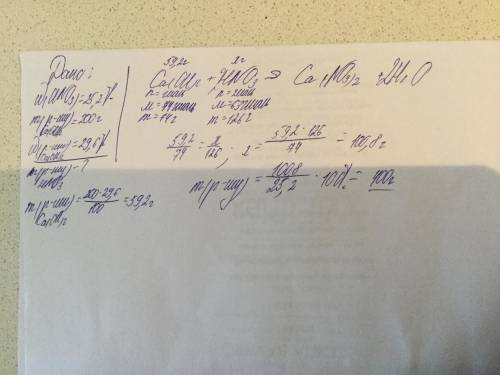 Дано:
w(HNO3)=25,2%
m(р-ну)=200г
Ca(OH)2
w(р-ну)=29,6%
m(р-ну)-?
HNO3
m(р-ну)=200·29,6/100=59,2г
Ca(OH)2
59,2г x г
Ca(OH)2 + 2HNO3 => Ca(NO3)2 + 2H2O
n=1моль n=2моль
M=74г/моль M=63г/моль
m=74г m=126г
59,2/74 = x/126; x = 59,2·126/74 = 100,8г
m(р-ну) = 100,8/25,2 · 100% = 400г